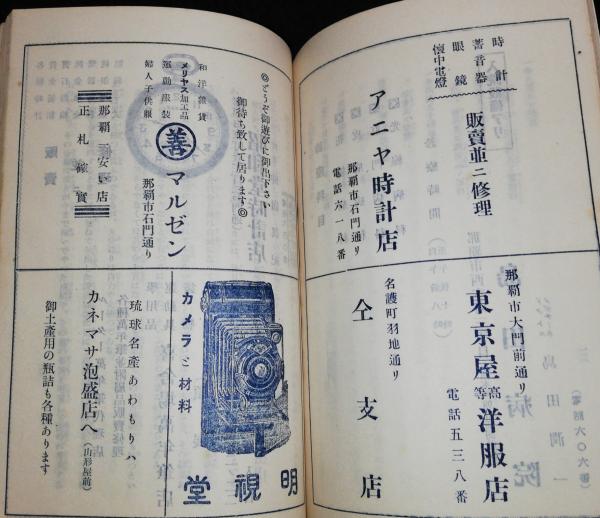 時計
蓄音器
眼鏡
懐中電燈
販賣並ニ修理
アニヤ時計店
那覇市石門通リ
電話六一八番
名護町羽地通リ
仝支店
那覇市大門前通リ
東京屋高等洋服店
電話五三八番
◎どうぞ御遊びに御出下さい
御待ち致して居ります◎
和洋雑貨
メリヤス加工品
運動服装
婦人子供服
善
マルゼン
那覇市石門通り
那覇一安い店
正札確實
カメラと材料
明視堂
琉球名産あわもりハ
カネマサ泡盛店へ
(山形屋前)
御土産用の瓶詰も各種あります